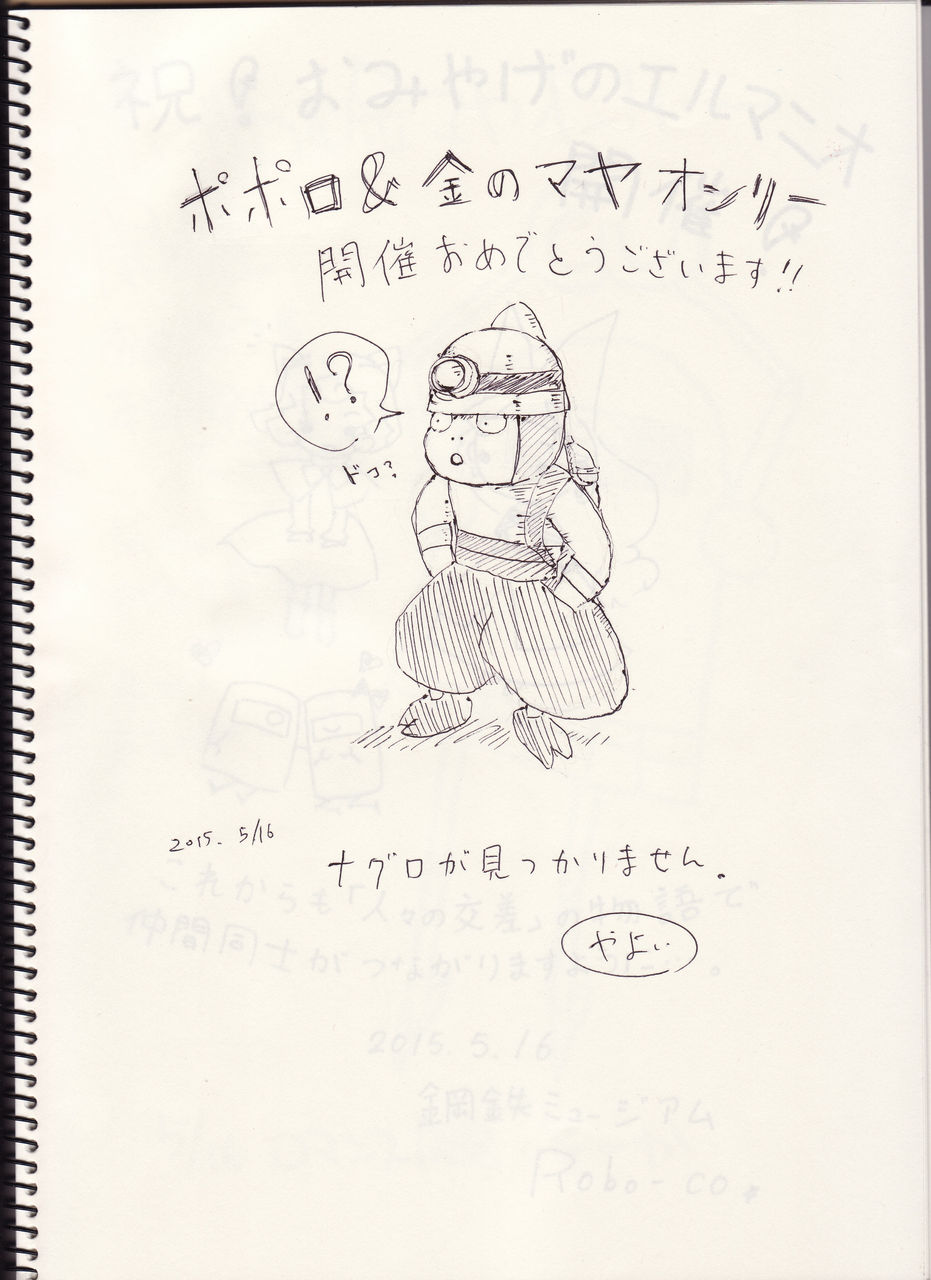 祝!おみやげのエルマニオ
開催
ポポロ&金のマヤオンリー
開催おめでとうございます!!
!?
ドコ?
2015. 5/16
ナグロが見つかりません。
これからも「人々の交差」の物語で
やよい
仲間同士がつながりますよう
2015.5.16
鋼鉄ミュージアム
Robo-co.